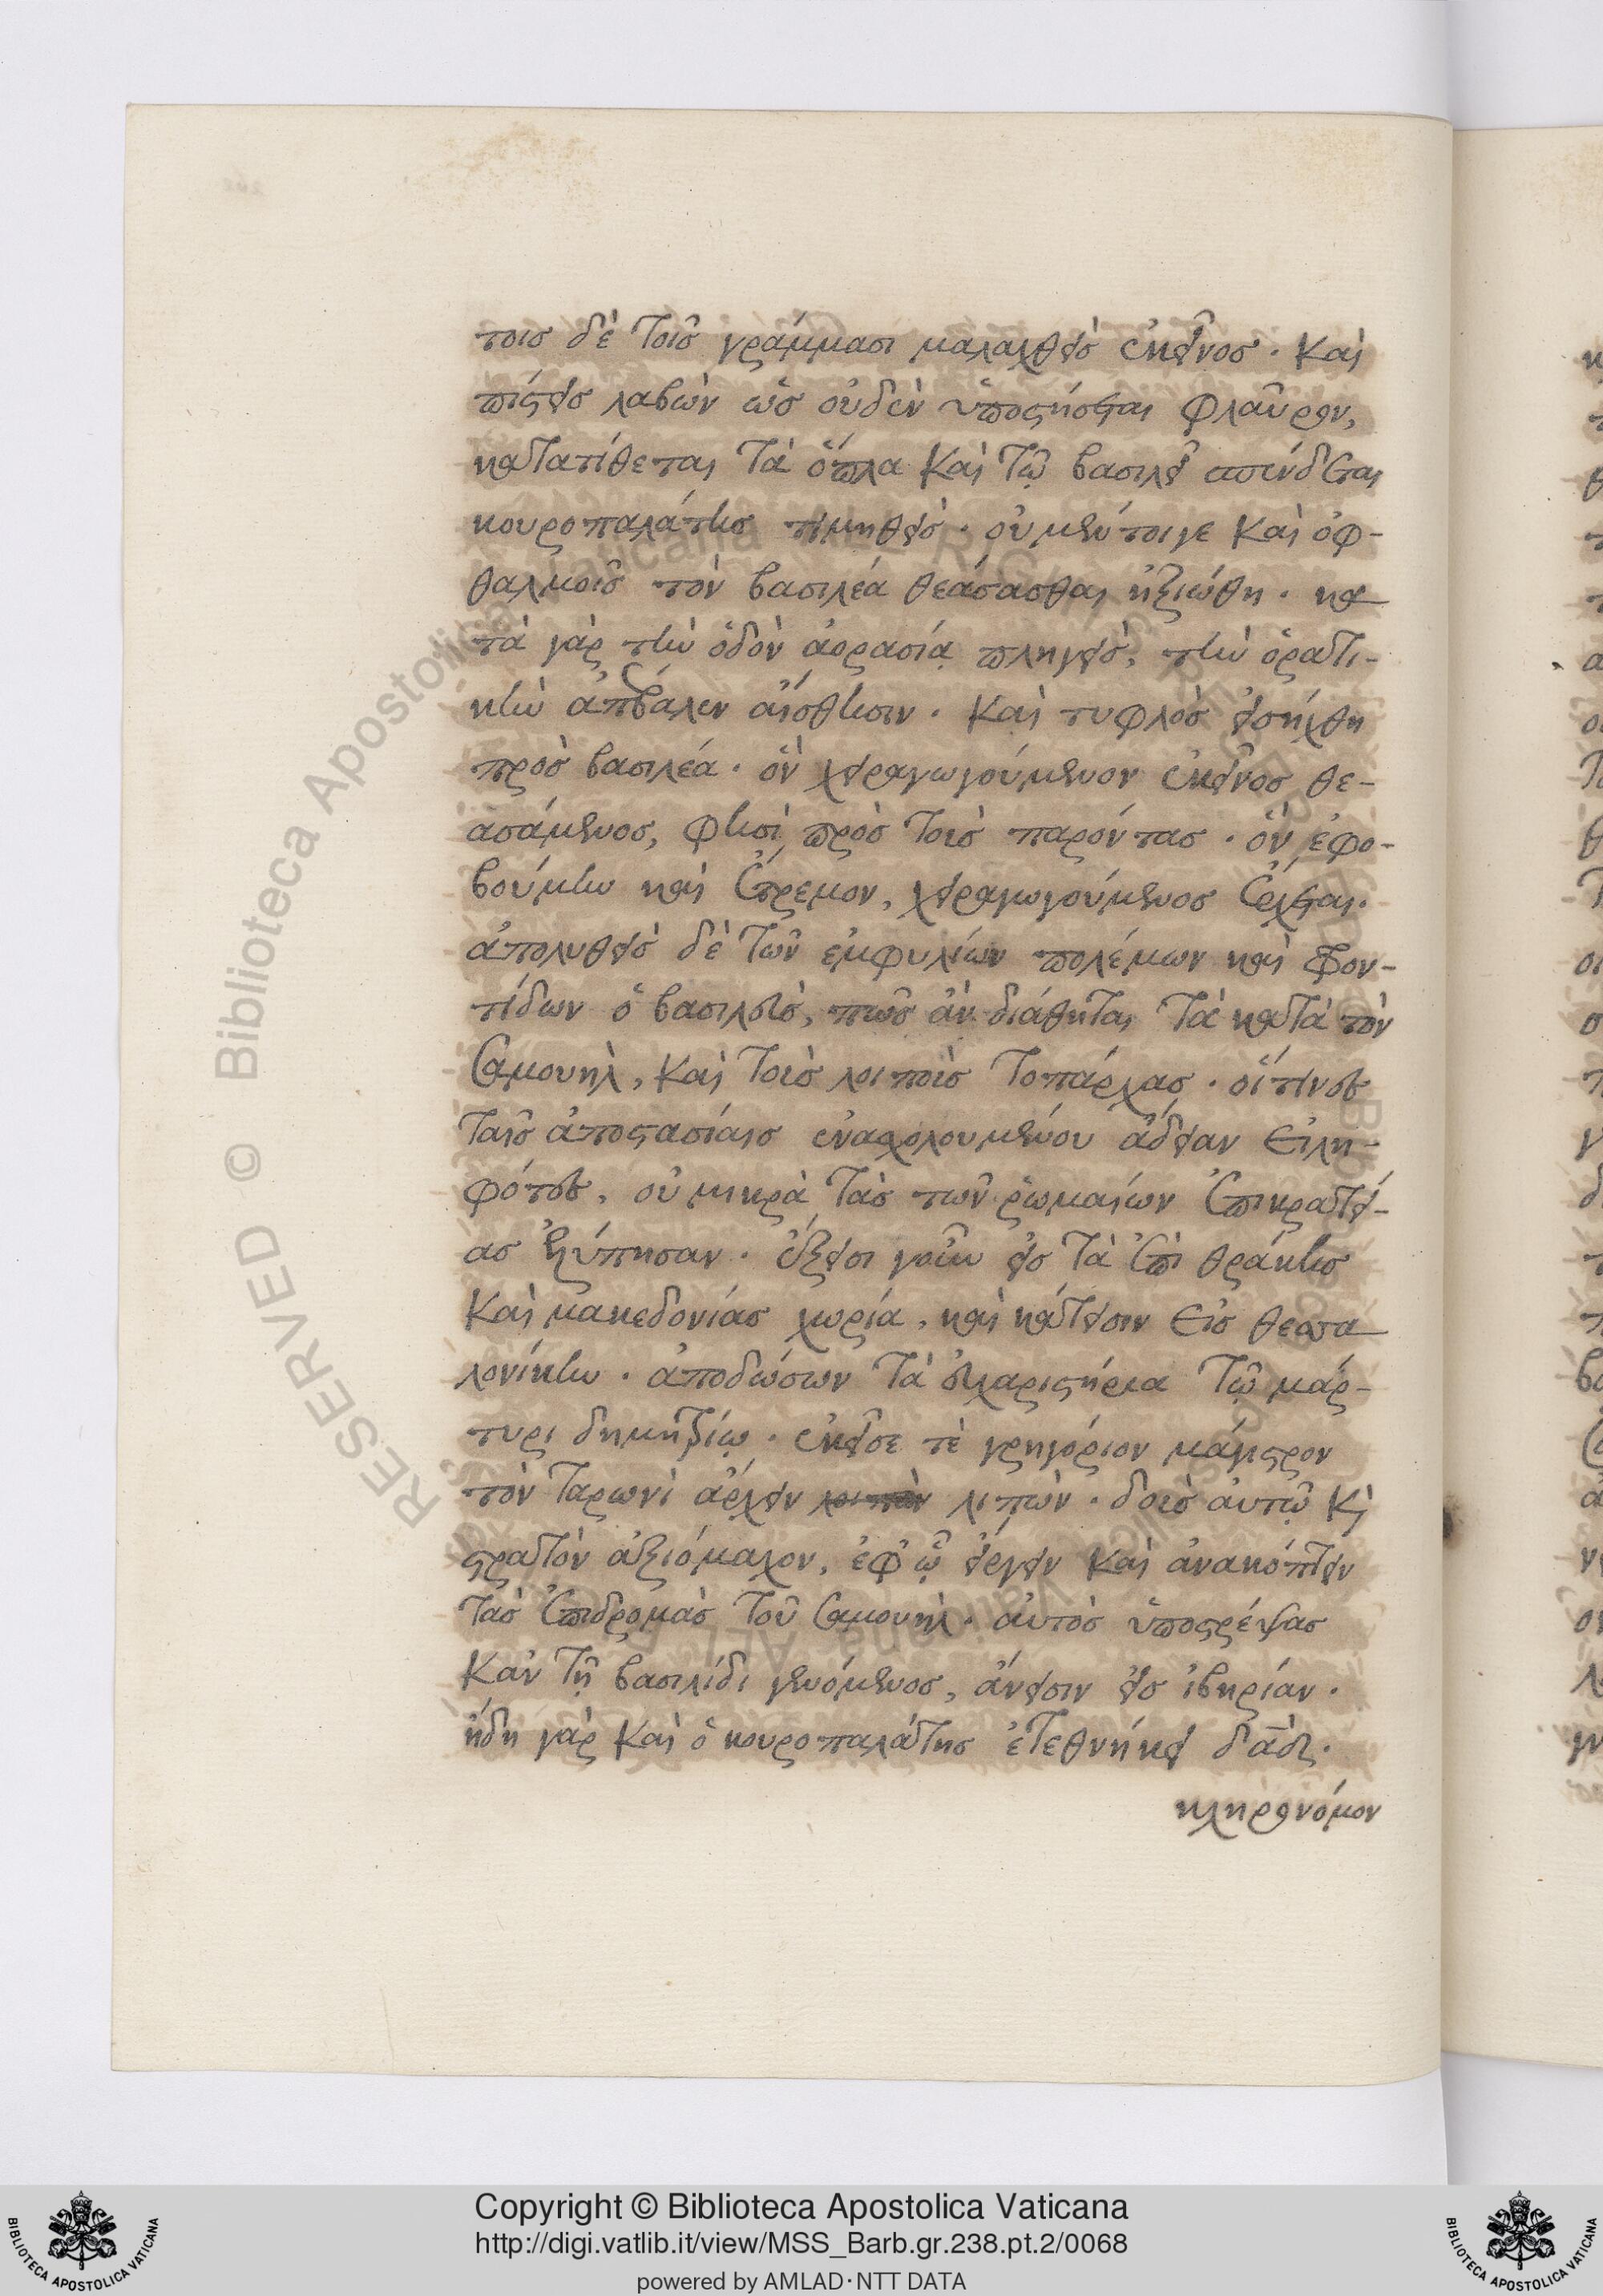 τοις δὲ τοῖς γράμμασι μαλαχθεὶς ἐκεῖνος. καὶ
πίστεις λαβὼν ὡς οὐδὲν ὑποστήσεται φλαῦρον,
κατατίθεται τὰ ὅπλα καὶ τῷ βασιλεῖ σπένδεται
κουροπαλάτης τιμηθείς. οὐ μέντοιγε καὶ ὀφ-
θαλμοῖς τὸν βασιλέα θεάσασθαι ἠξιώθη. κα
τὰ γὰρ τὴν ὁδὸν ἀορασίᾳ πληγεὶς, τὴν ὁρατι-
κὴν ἀπέβαλεν αἴσθησιν. καὶ τυφλὸς εἰσήχθη
πρὸς βασιλέα. ὃν χειραγωγούμενον ἐκεῖνος θε-
ασάμενος, φησὶ πρὸς τοὺς παρόντας. ὃν ἐφο-
βούμην καὶ ἔτρεμον, χειραγωγούμενος ἔρχεται.
ἀπολυθεὶς δὲ τῶν ἐμφυλίων πολέμων καὶ φρον-
τίδων ὁ βασιλεὺς, πῶς ἂν διάθηται τὰ κατὰ τὸν
Σαμουὴλ, καὶ τοὺς λοιποὺς τοπάρχας. οἵτινες
ταῖς ἀποστασίαις ἐνασχολουμένου ἄδειαν εἰλη-
φότες, οὐ μικρὰ τὰς τῶν ῥωμαίων ἐπικρατεί-
ας ἐλύπησαν. ἔξεισι γοῦν εἰς τὰ ἐπὶ θράκης
καὶ μακεδονίας χωρία, καὶ κάτεισιν εἰς θεσσα
λονίκην. ἀποδώσων τὰ εὐχαριστήρια τῷ μάρ-
τυρι δημητρίῳ. ἐκεῖσε τὲ γρηγόριον μάγιστρον
τὸν ταρωνὶ ἄρχειν λοιπὸν λιπὼν. δοὺς αὐτῷ κὶ
στρατὸν ἀξιόμαχον, ἐφ' ᾧ εἴργειν καὶ ἀνακόπτειν
τὰς ἐπιδρομὰς τοῦ Σαμουήλ. αὐτὸς ὑποστρέψας
κἀν τῇ βασιλίδι γενόμενος, ἄνεισιν εἰς ἰβηρίαν.
ἤδη γὰρ καὶ ὁ κουροπαλάτης ἐτεθνήκει δα̅δ.
κληρονόμον
Copyright © Biblioteca Apostolica Vaticana
http://digi.vatlib.it/view/MSS_Barb.gr.238.pt.2/0068
powered by AMLAD·NTT DATA